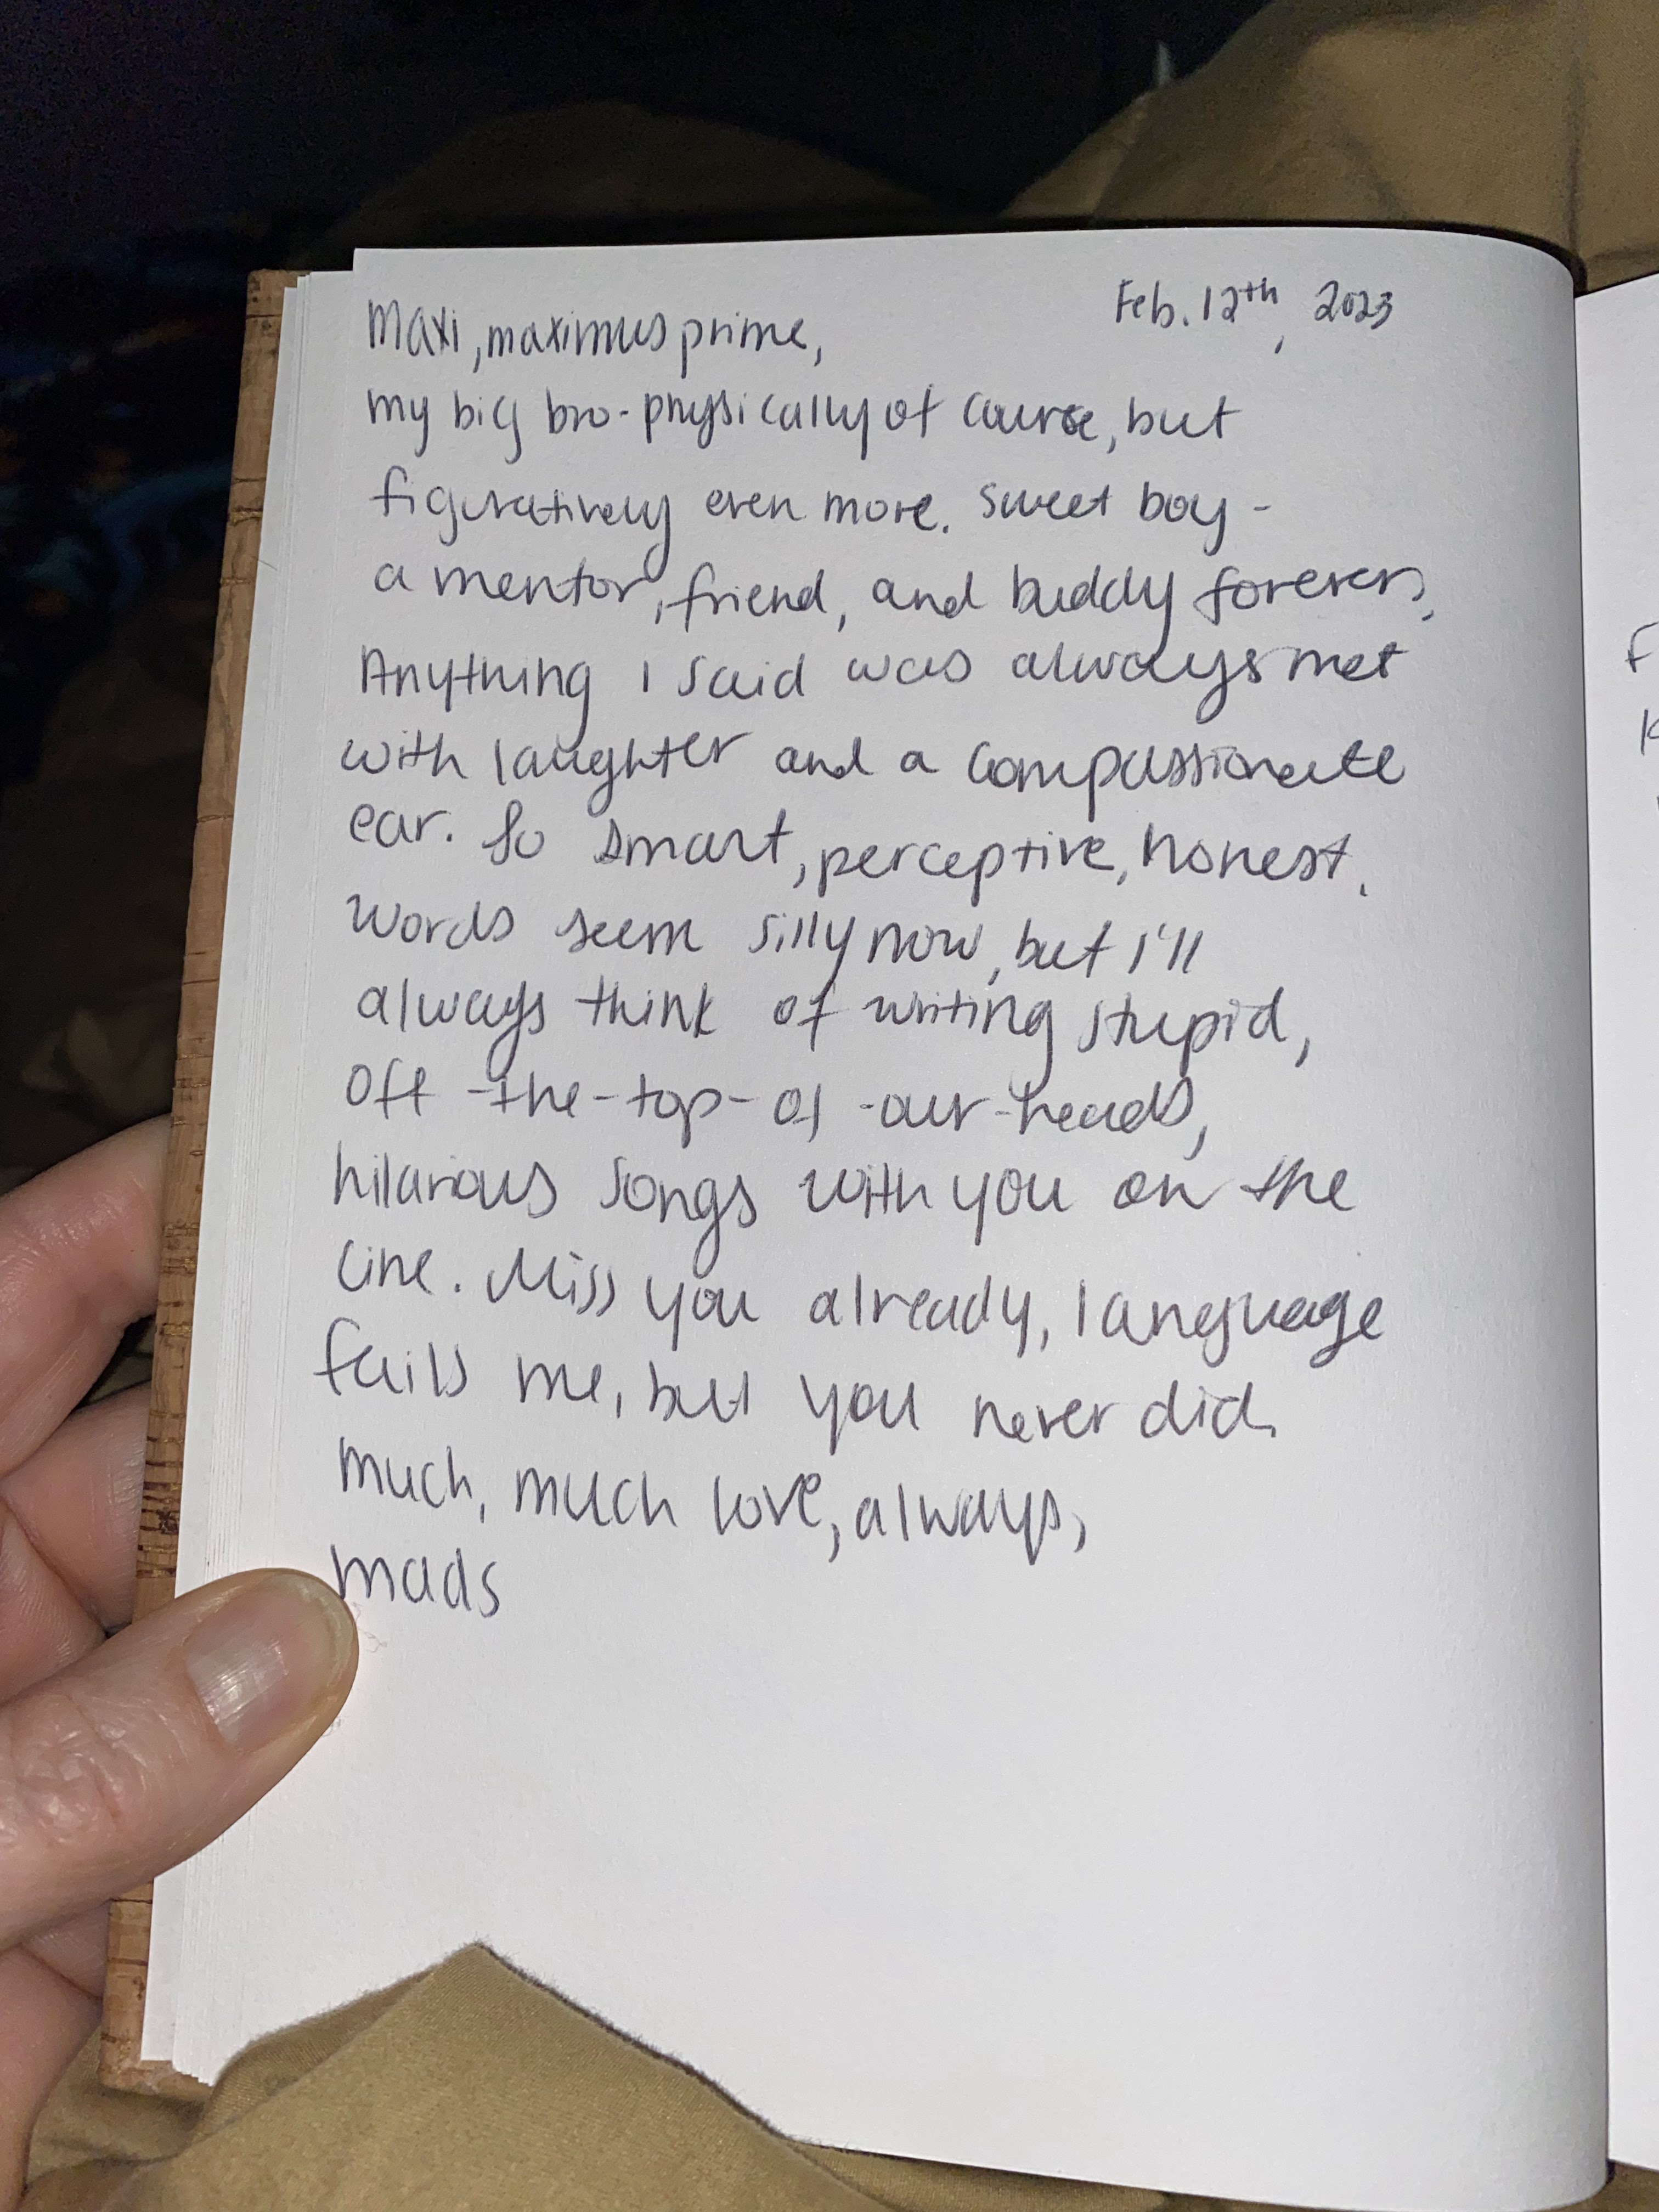 Feb. 12th, 2023
Maxi, maximus prime,
my big bro - physically of course, but
figuratively even more. Sweet boy -
a mentor, friend, and buddy forever.
Anything I said was always met
with laughter and a compassionate
ear. So smart, perceptive, honest.
Words seem silly now, but I'll
always think of writing stupid,
off-the-top-of-our-heads,
hilarious songs with you on the
line. Miss you already, language
fails me, but you never did.
Much, much love, always,
Mads
F